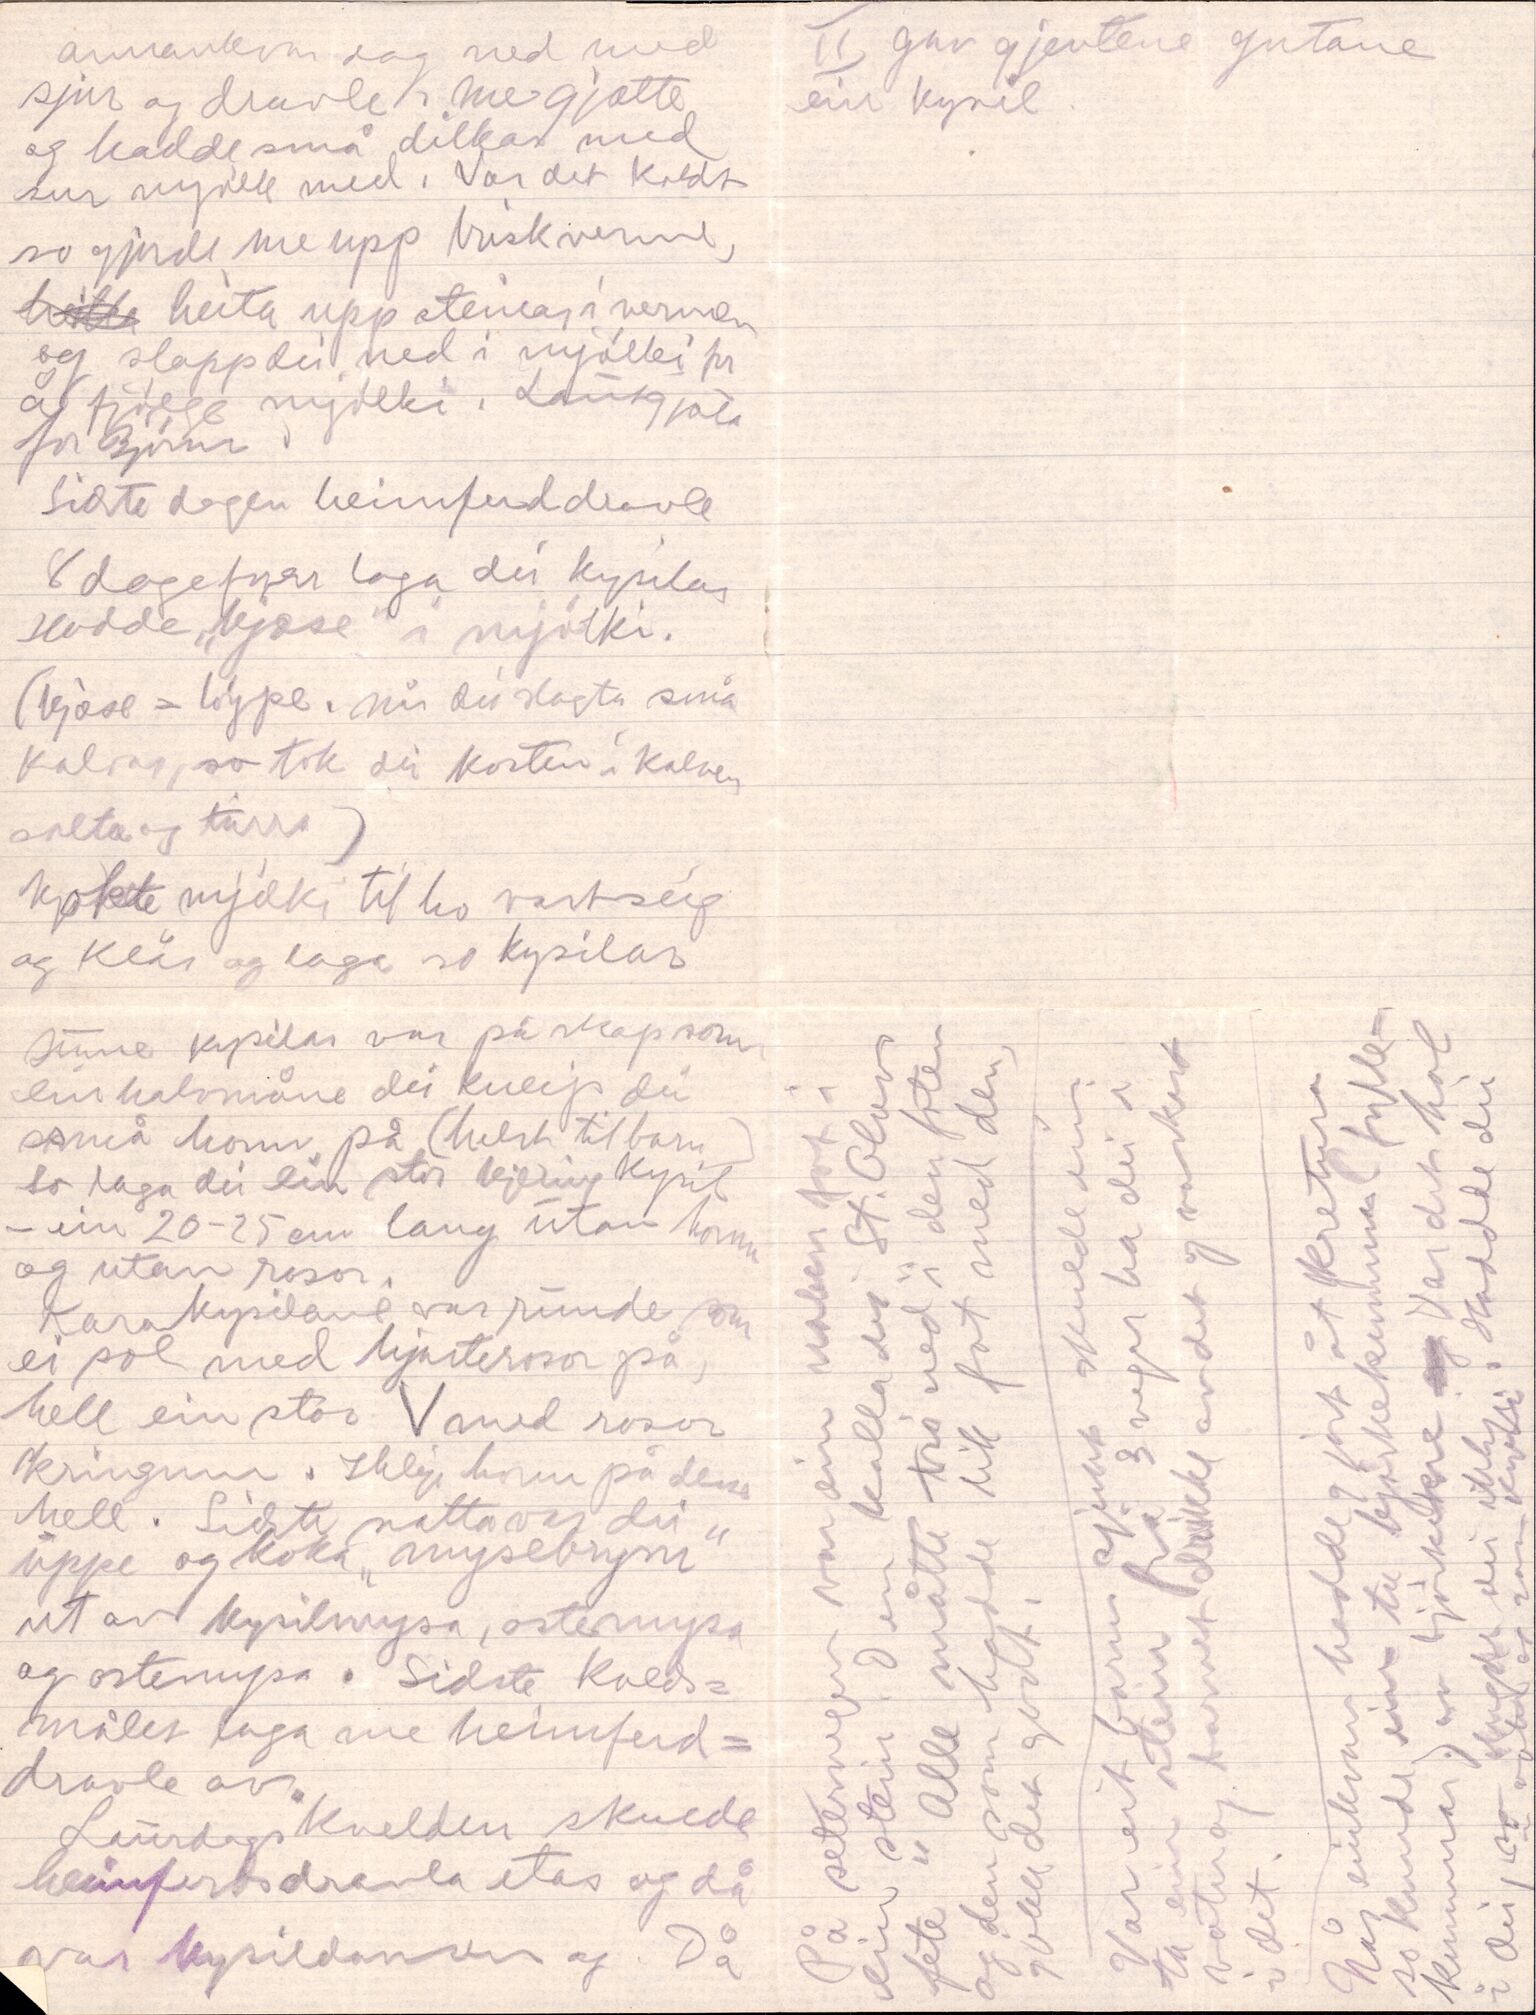 annankvar dag ned med
sjur og dravle. me gjætte
og hadde små dilkar med
sur mjölk med. Var det koldt
so gjorde me upp briskverme,
heita upp steinar i vermen
og slapp dei ned i mjölki for
å fjelge mjölki. Laut gjæta
for Björnen.
Sidste dagen heimferd dravle
8 dage fyrr laga dei kysilar
Hadde „kjæse" i mjölki.
(kjæse = löype. når dei slagta små
kalvar, so tok dei kosten i kalven
salta og turra)
kjokte mjölki til ho vart seig
og klår og laga so kysilar
Sume kysilar var på skap som
ein halvmåne dei kneip dei
små horn på (helst til barn)
So laga dei ein stor kysil
– ein 20-25 cm lang utan horn
og utan rosor.
Karakysilane var runde som
ei sol med hjarterosor på,
hell ein stor V med rosor
kringum. Ikkje horn på dena
hell. Sidste natta var dei
uppe og koka „mysebrym"
ut av kysilmysa, ostemysa
og ostemysa. Sidste kvelds=
målet laga me heimferd=
dravle av.
Laurdagskvelden skulde
heimferdsdravla etas og då
var kysildansen og. Då
II gav gjentene gutane
ein kysil.
På setervegen var ein naken fot i
ein stein. Den kalla dei „St. Olavs
fete" Alle måtte trø ned i den foten
og den som hadde lik fot med den,
gjekk det godt.
Var eit barn sjukt skulde ein
ta ein stein frå 3 veger ha dei i
vatn og barnet drikke av det og vaskast
i det.
Når einkvan hadde gjort åt kretura
so kunde ein ta bjørkekumma (fylle=
kummar) av bjørketre. Var det hol
i dei, so slngde dei ikkje. Hadde dei